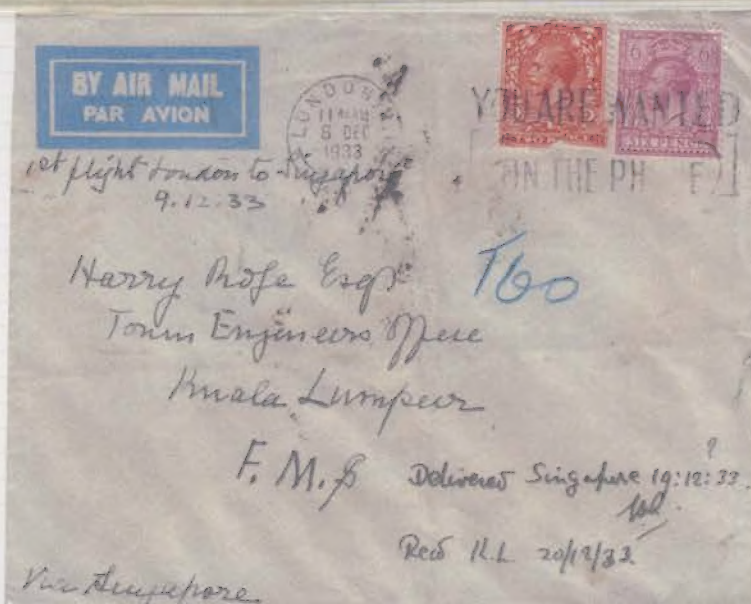 BY AIR MAIL
PAR AVION
LONDON
11
6 DEC
1933
YOU ARE WANTED
ON THE PH E
6 6
SIX PENCE
TWO PENCE
1st flight London to Singapore
9.12.33
T60
Harry Esqr
Town Engineers Office
Kuala Lumpur
F.M.S
?
Delivered Singapore 19:12:33.
Recd K.L 20/12/33
Via Singapore